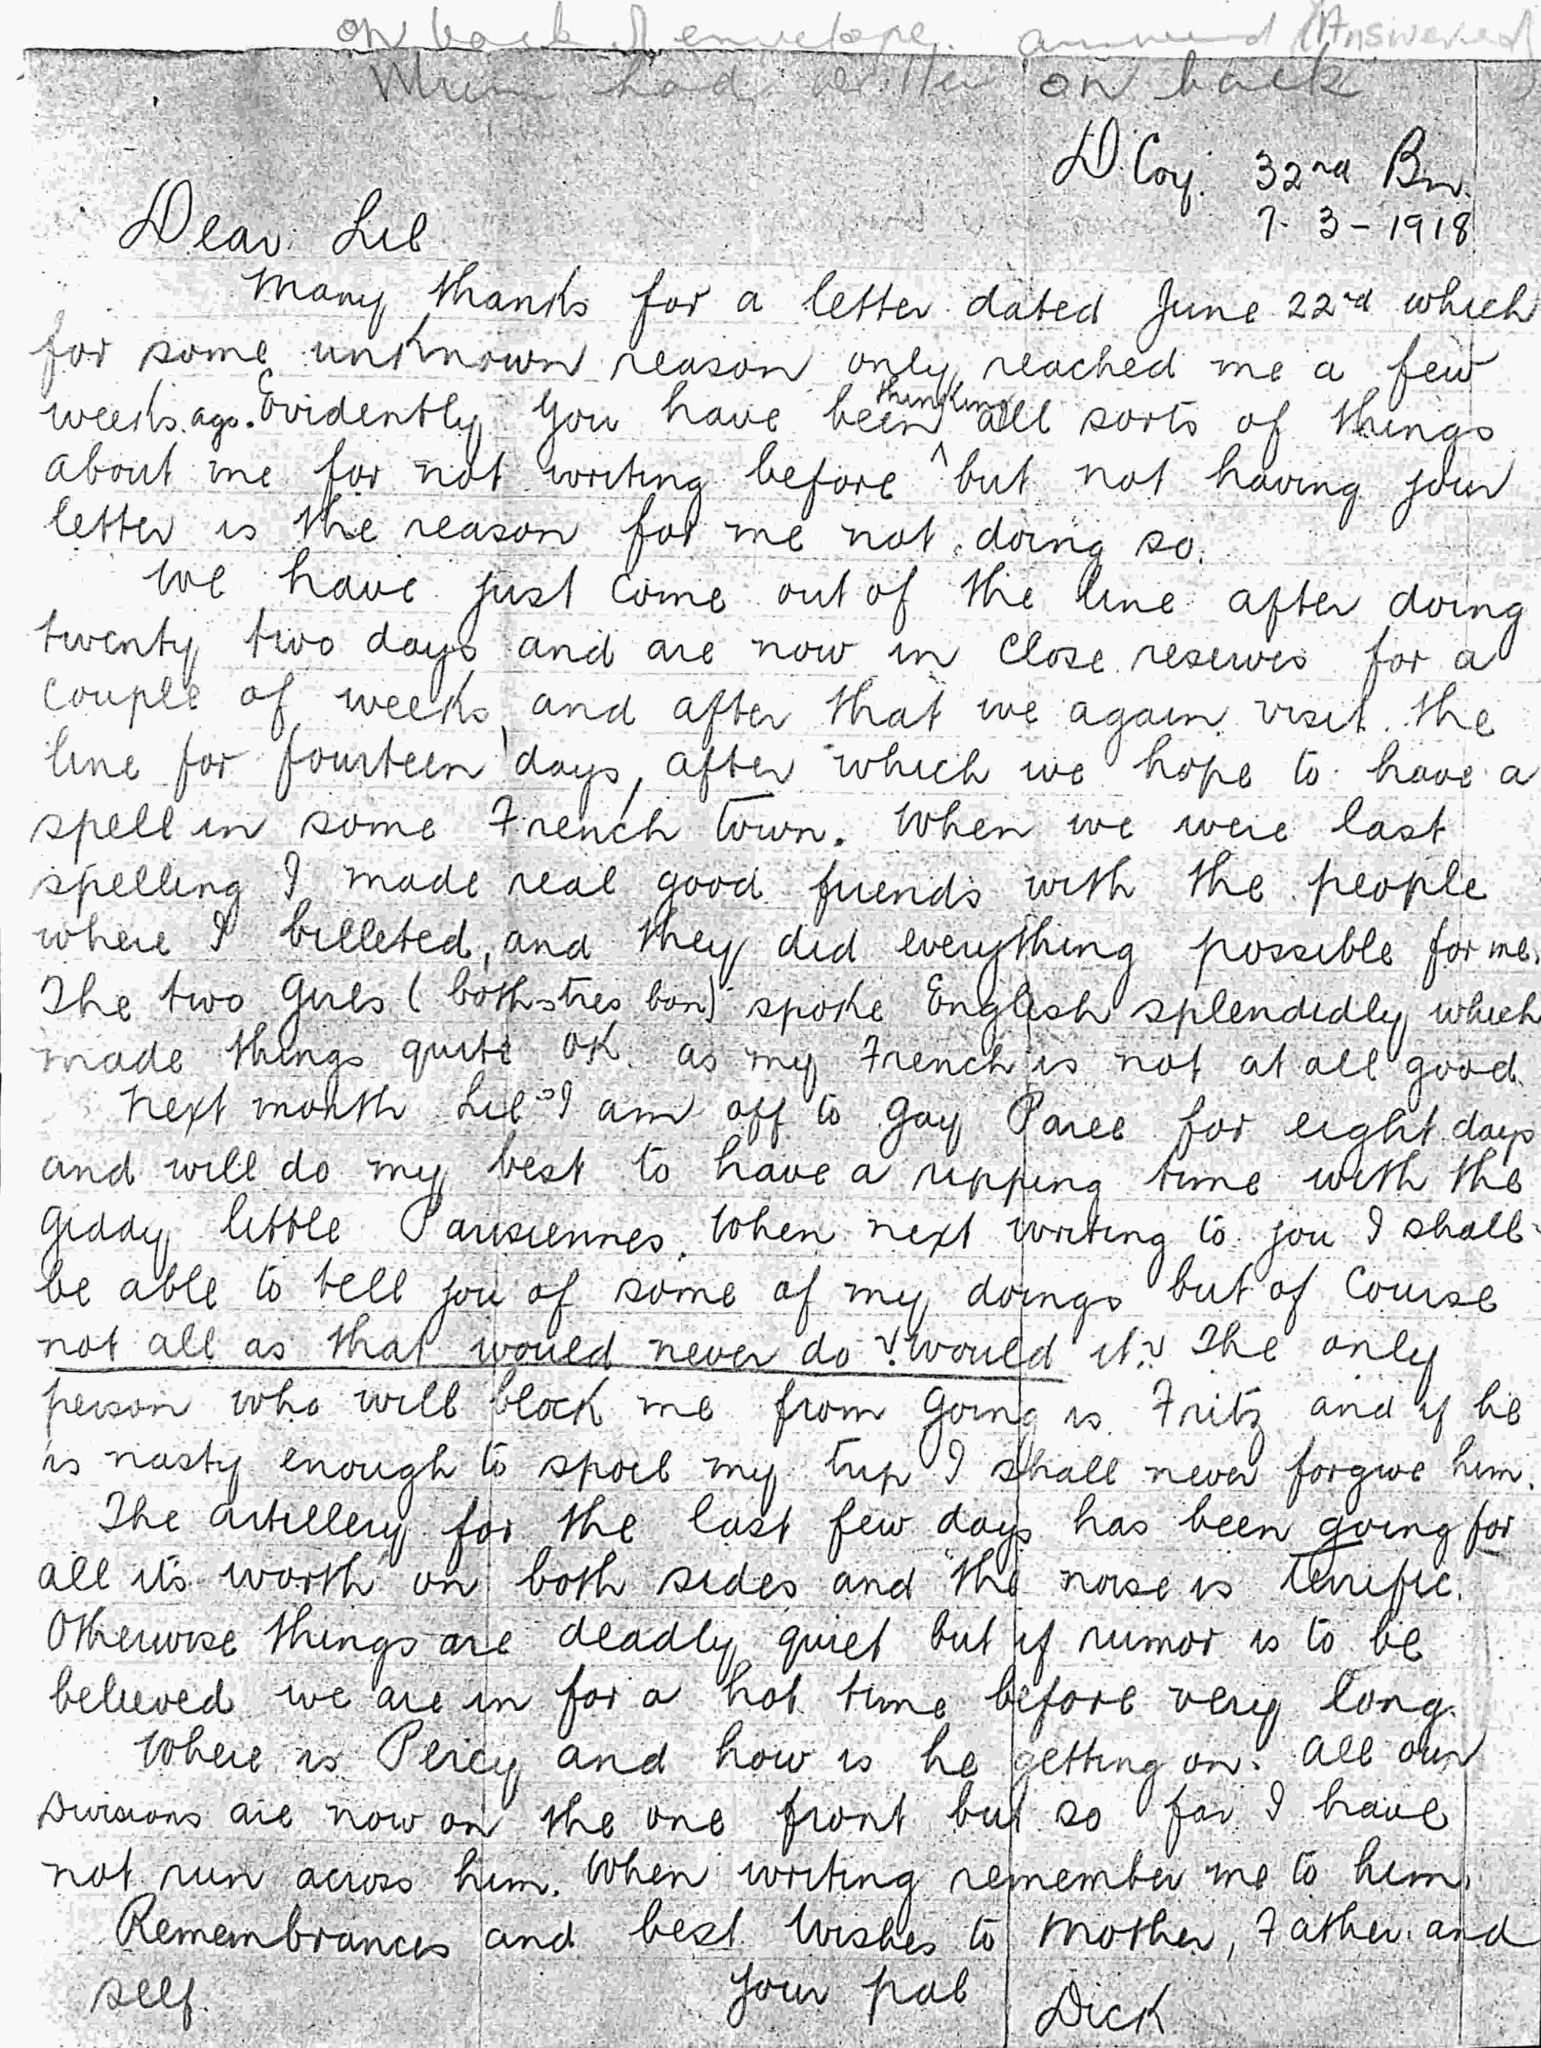 on back of envelope. answered (Answered)
Mum had written on back
D. Coy. 32nd Bn.
7-3-1918
Dear Lil
Many thanks for a letter dated June 22nd which
for some unknown reason only reached me a few
weeks ago. Evidently you have been thinking all sorts of things
about me for not writing before ^ but not having your
letter is the reason for me not doing so.
We have just come out of the line after doing
twenty two days and are now in close reserves for a
couple of weeks, and after that we again visit the
line for fourteen days, after which we hope to have a
spell in some French town. When we were last
spelling I made real good friends with the people
where I billeted, and they did everything possible for me.
The two girls (both tres bon) spoke English splendidly which
made things quite OK as my French is not at all good.
Next month Lil I am off to Gay Paree for eight days
and will do my best to have a ripping time with the
giddy little Parisiennes. When next writing to you I shall
be able to tell you of some of my doings but of course
not all as that would never do! would it? The only
person who will block me from going is Fritz and if he
is nasty enough to spoil my trip I shall never forgive him.
The artillery for the last few days has been going for
all its worth on both sides and the noise is terrific.
Otherwise things are deadly quiet but if rumor is to be
believed we are in for a hot time before very long.
Where is Percy and how is he getting on. All our
Divisions are now on the one front but so far I have
not run across him. When writing remember me to him.
Remembrances and best wishes to Mother, Father and
self.
Your pal
Dick